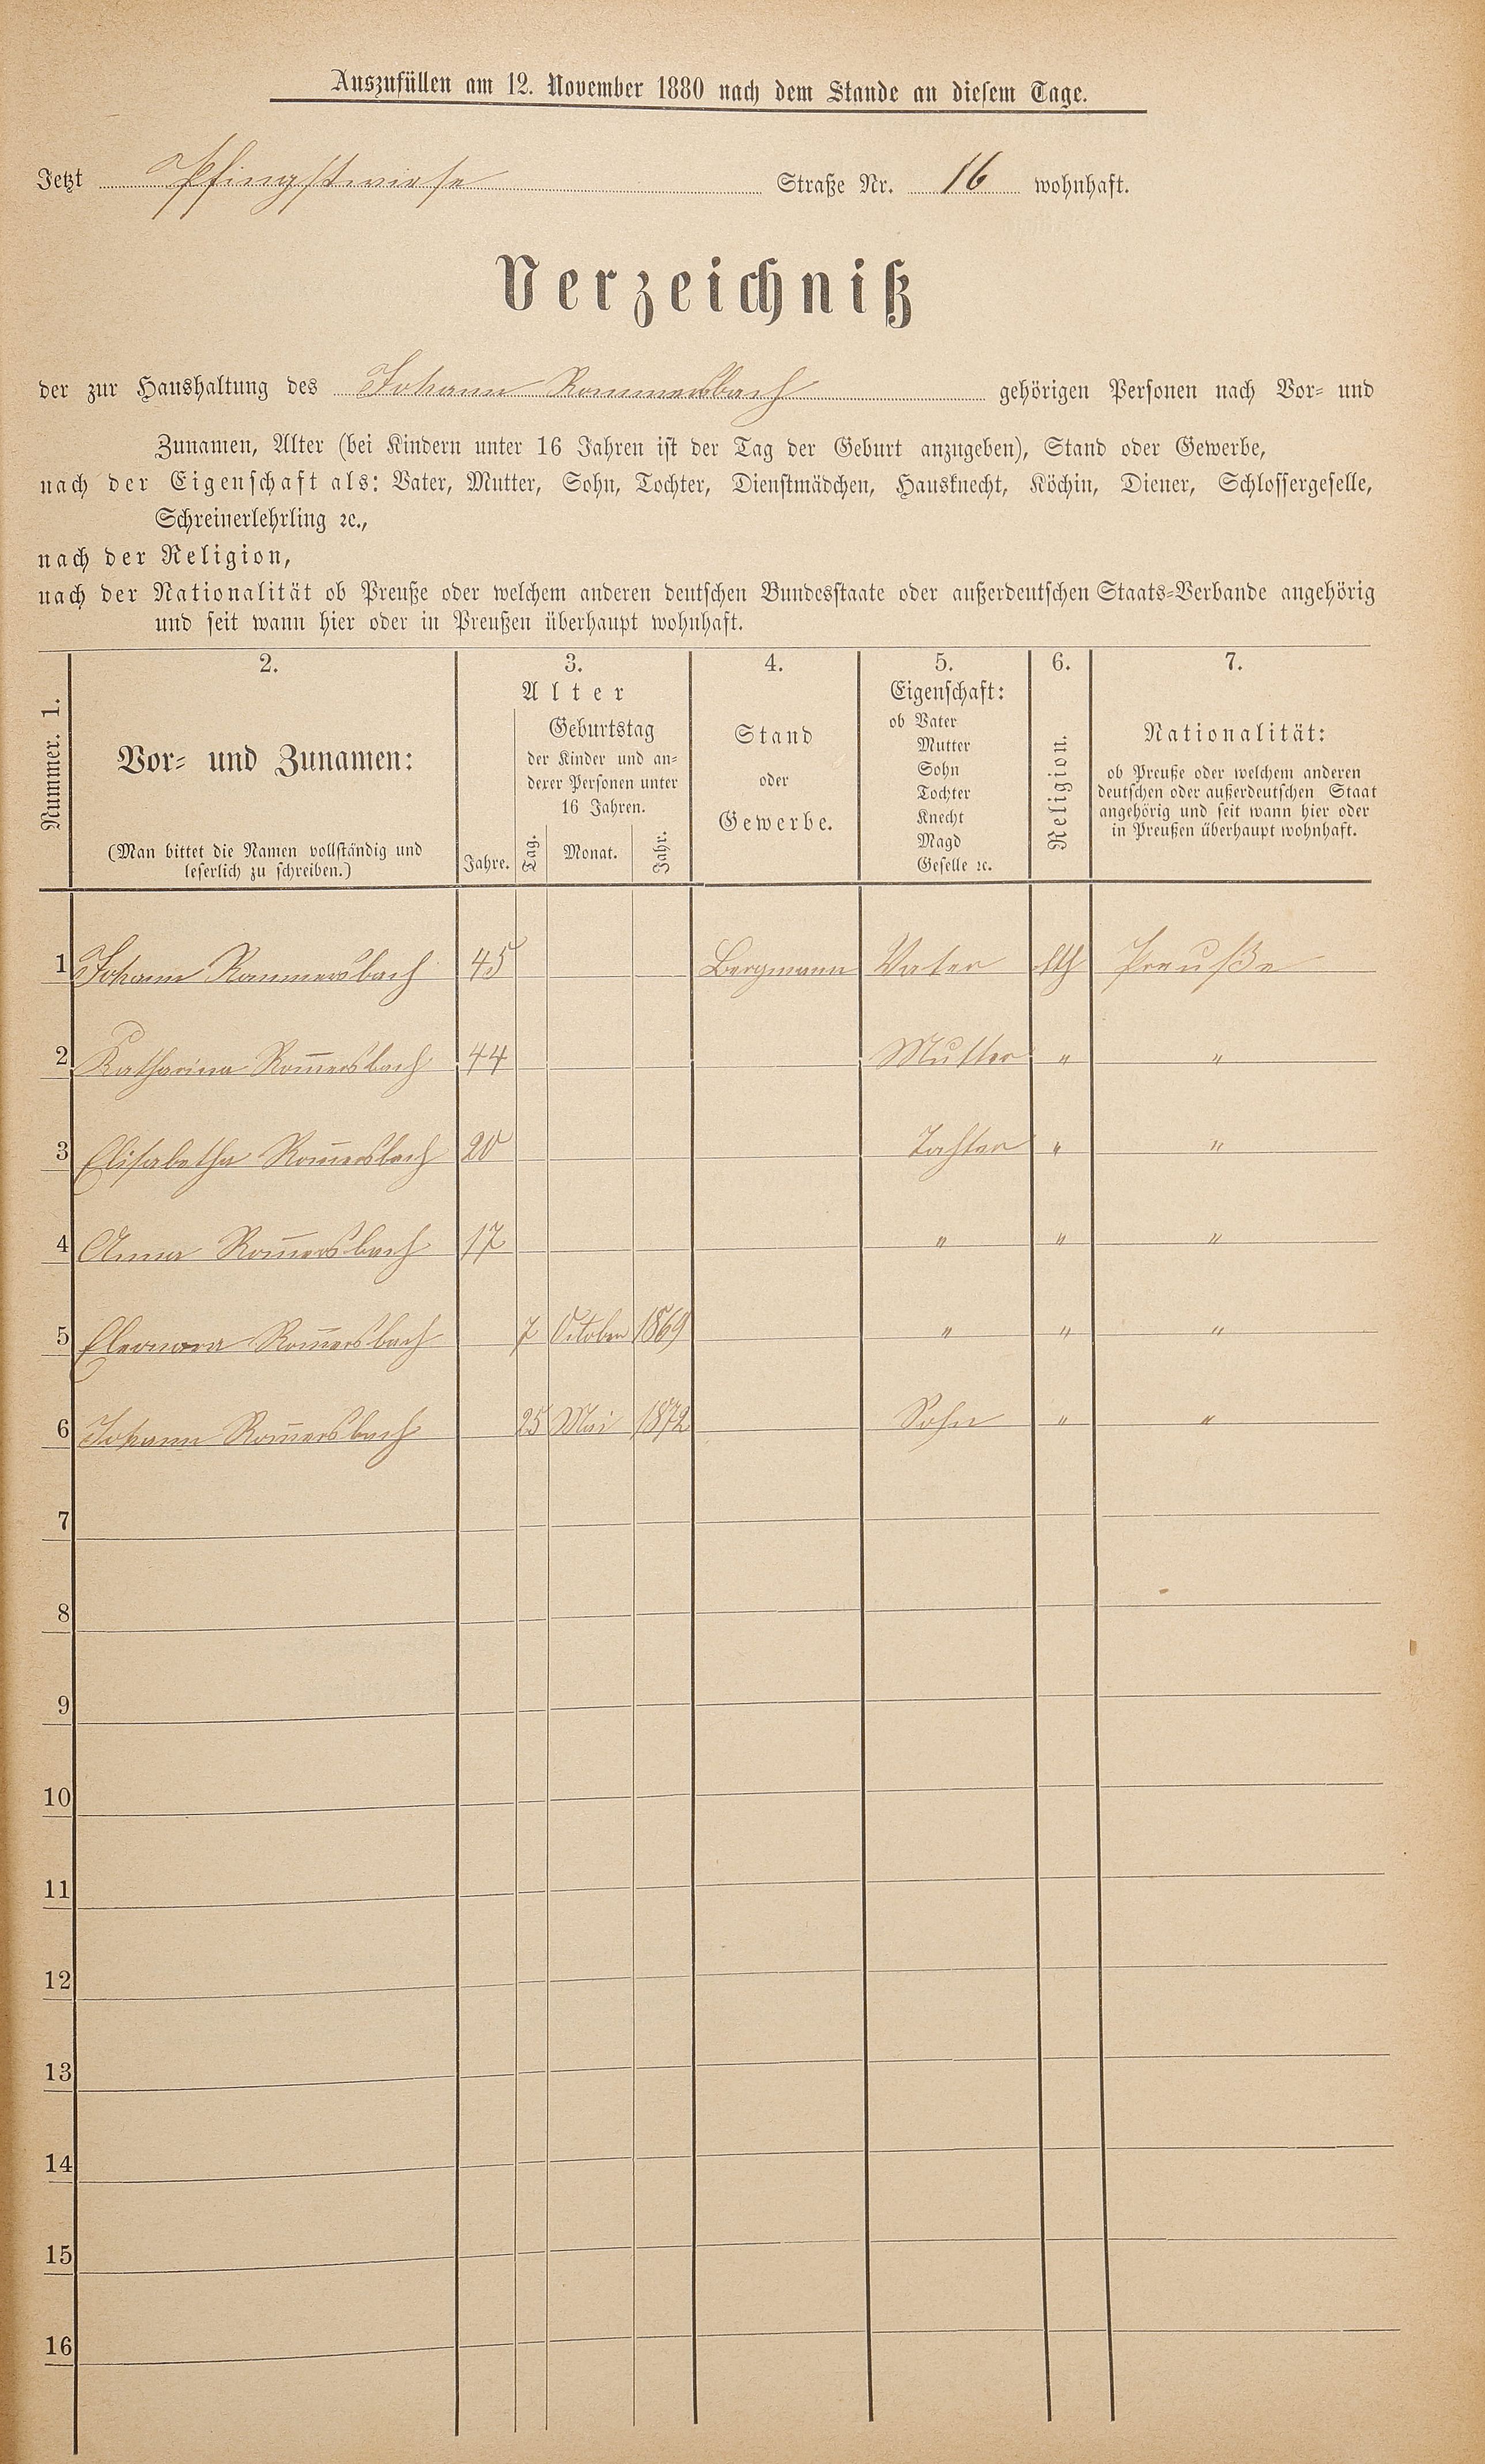 Auszufüllen am 12. November 1880 nach dem Stande an diesem Tage.
Jetzt Pfingstwiese Straße Nr. 16 wohnhaft.
Verzeichniß
der zur Haushaltung des Johann Rommersbach gehörigen Personen nach Vor- und
Zunamen, Alter (bei Kindern unter 16 Jahren ist der Tag der Geburt anzugeben), Stand oder Gewerbe,
nach der Eigenschaft als: Vater, Mutter, Sohn, Tochter, Dienstmädchen, Hausknecht, Köchin, Diener, Schlossergeselle,
Schreinerlehrling ꝛc.,
nach der Religion,
nach der Nationalität ob Preuße oder welchem anderen deutschen Bundesstaate oder außerdeutschen Staats-Verbande angehörig
und seit wann hier oder in Preußen überhaupt wohnhaft.
Nummer. 1.
2.
Vor- und Zunamen:
(Man bittet die Namen vollständig und
leserlich zu schreiben.)
3.
Alter
Jahre.
Geburtstag
der Kinder und an-
derer Personen unter
16 Jahren.
Tag. Monat. Jahr.
4.
Stand
oder
Gewerbe.
5.
Eigenschaft:
ob Vater
Mutter
Sohn
Tochter
Knecht
Magd
Geselle ꝛc.
6.
Religion.
7.
Nationalität:
ob Preuße oder welchem anderen
deutschen oder außerdeutschen Staat
angehörig und seit wann hier oder
in Preußen überhaupt wohnhaft.
1 Johann Rommersbach 45 Bergmann Vater kth Preuße
2 Katharina Rom̅ersbach 44 Mutter " "
3 Elisabetha Rom̅ersbach 20 Tahter " "
4 Anna Rom̅ersbach 17 " " "
5 Eleonora Rom̅ersbach 7 October 1869 " " "
6 Johann Rom̅ersbach 25 Mai 1872 Sohn " "
7
8
9
10
11
12
13
14
15
16